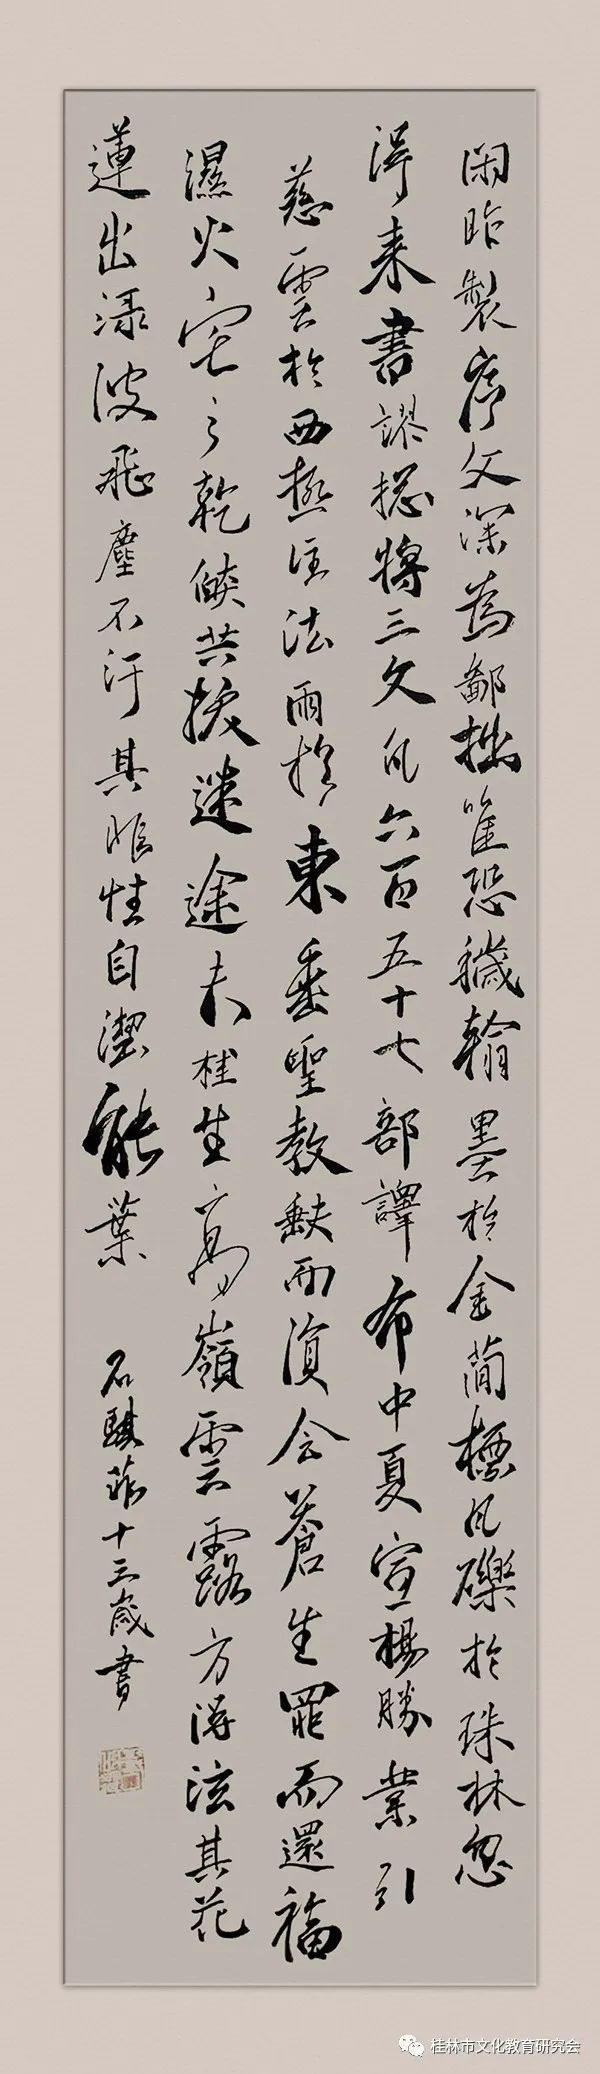 閑昨製序文深為鄙拙唯恐穢翰墨於金簡標瓦礫於珠林忽
得来書謬揔將三文凡六百五十七部譯布中夏宣揚勝業引
慈雲於西極注法雨於東垂聖教缺而復全蒼生罪而還福
濕火宅之乾焰共拔迷途夫桂生高嶺雲露方得泫其花
蓮出淥波飛塵不汙其性自潔能葉
石騏菲十三歲書
桂林市文化教育研究会